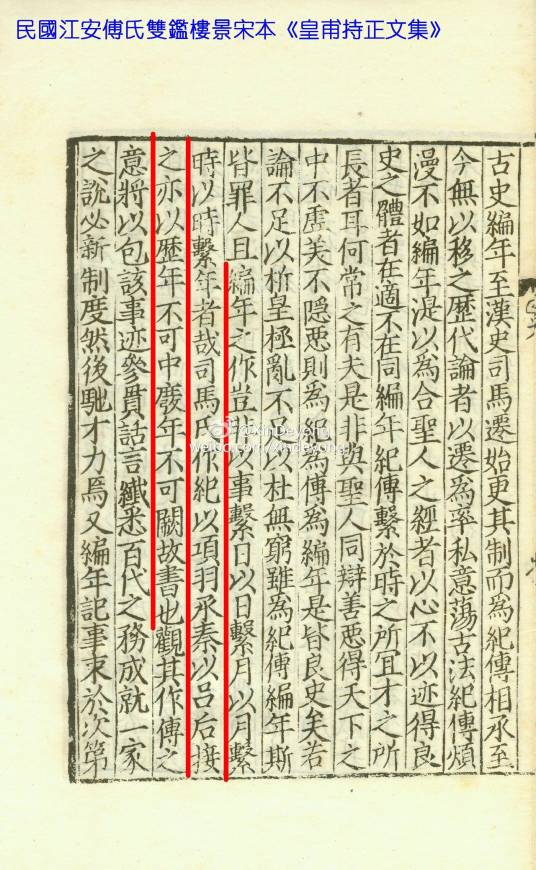 民國江安傅氏雙鑑樓景宋本《皇甫持正文集》
古史編年至漢史司馬遷始更其制而爲紀傳相承至
今無以移之歷代論者以遷爲率私意蕩古法紀傳煩
漫不如編年湜以為合聖人之經者以心不以迹得良
史之體者在適不在同編年紀傳繫於時之所冝才之所
長者耳何常之有夫是非與聖人同辯善惡得天下之
中不虛美不隱惡則爲紀爲傳爲編年是皆良史矣若
論不足以析皇極亂不足以杜無窮雖爲紀傳編年斯
皆罪人且編年之作豈非以事繫日以日繫月以月繫
時以時繫年者哉司馬氏作紀以項羽承秦以吕后接
之亦以歷年不可中廢年不可闕故書也觀其作傳之
意將以包該事迹參貫話言纖悉百代之務成就 家
之說必新制度然後馳才力焉又編年記事束於次第
@XinDeyong
weibo.com/xindeyong